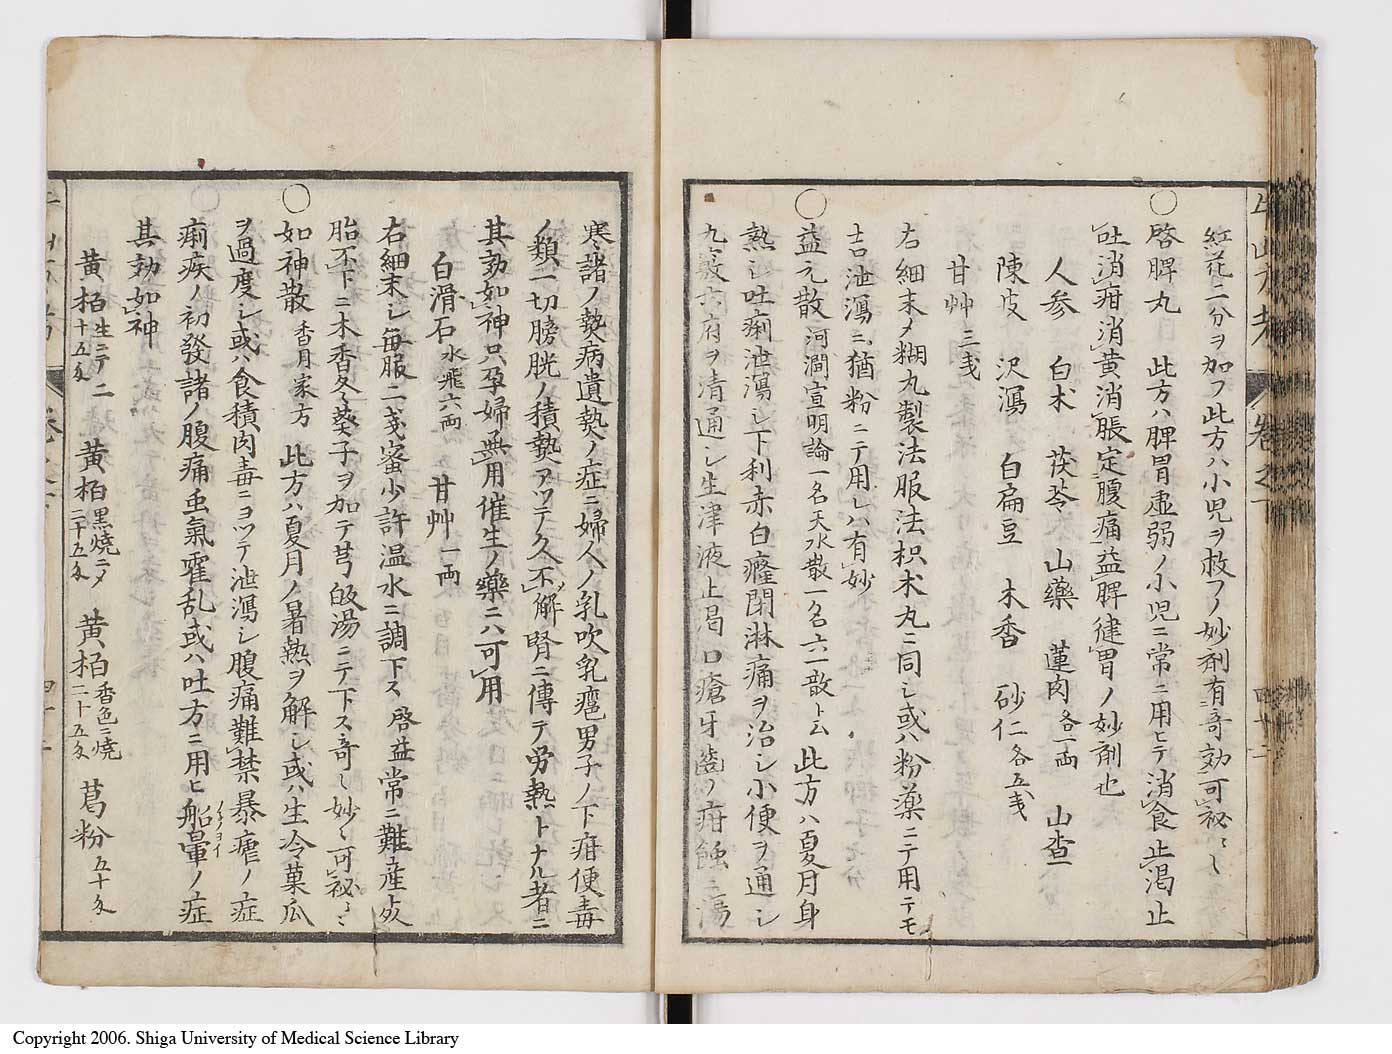 紅花二分ヲ加フ此方ハ小児ヲ救フノ妙剤有奇効可秘〻〻
○啓脾丸 此方ハ脾胃虚弱ノ小児ニ常ニ用ヒテ消食止渇止
吐消疳消黄消脹定腹痛益脾健胃ノ妙剤也
人参 白朮 茯苓 山藥 蓮肉各一両 山査
陳皮 沢瀉 白扁豆 木香 砂仁各五戋
甘艸三戋
右細末メ糊丸製法服法枳朮丸ニ同シ或ハ粉薬ニテ用テモ
吉泄瀉ニ猶粉ニテ用レハ有妙
○益元散河澗宣明論一名天水散一名六一散トム 此方ハ夏月身
熱シ吐痢泄瀉シ下利赤白癃閉淋痛ヲ治シ小便ヲ通シ
九竅六府ヲ清通シ生津液止渇口瘡牙齒ヲ疳蝕ニ傷
寒諸ノ𤍠病遺𤍠ノ症ニ婦人ノ乳吹乳癰男子ノ下疳便毒
ノ類一切膀胱ノ積𤍠アツテ久不解腎ニ傳テ労熱トナル者ニ
其効如神只孕婦無用催生ノ藥ニハ可用
白滑石水飛六両 甘艸一両
右細末シ毎服二戔蜜少許温水ニ調下ス 啓益常ニ難産死
胎不下ニ木香冬葵子ヲ加テ芎皈湯ニテ下ス奇〻妙〻可秘〻〻
○如神散香月家方 此方ハ夏月ノ暑熱ヲ解シ或ハ生冷菓瓜
ヲ過度シ或ハ食積肉毒ニヨツテ泄瀉シ腹痛難禁暴瘧ノ症
痢疾ノ初發諸ノ腹痛虫氣霍乱或ハ吐方ニ用ヒ船暈ノ症
其効如神
黄栢生ニテ二十五匁 黄栢黒焼ニメ二十五匁 黄栢香色ニ焼二十五匁 葛粉五十匁
Copyright 2006. Shiga University of Medical Science Library